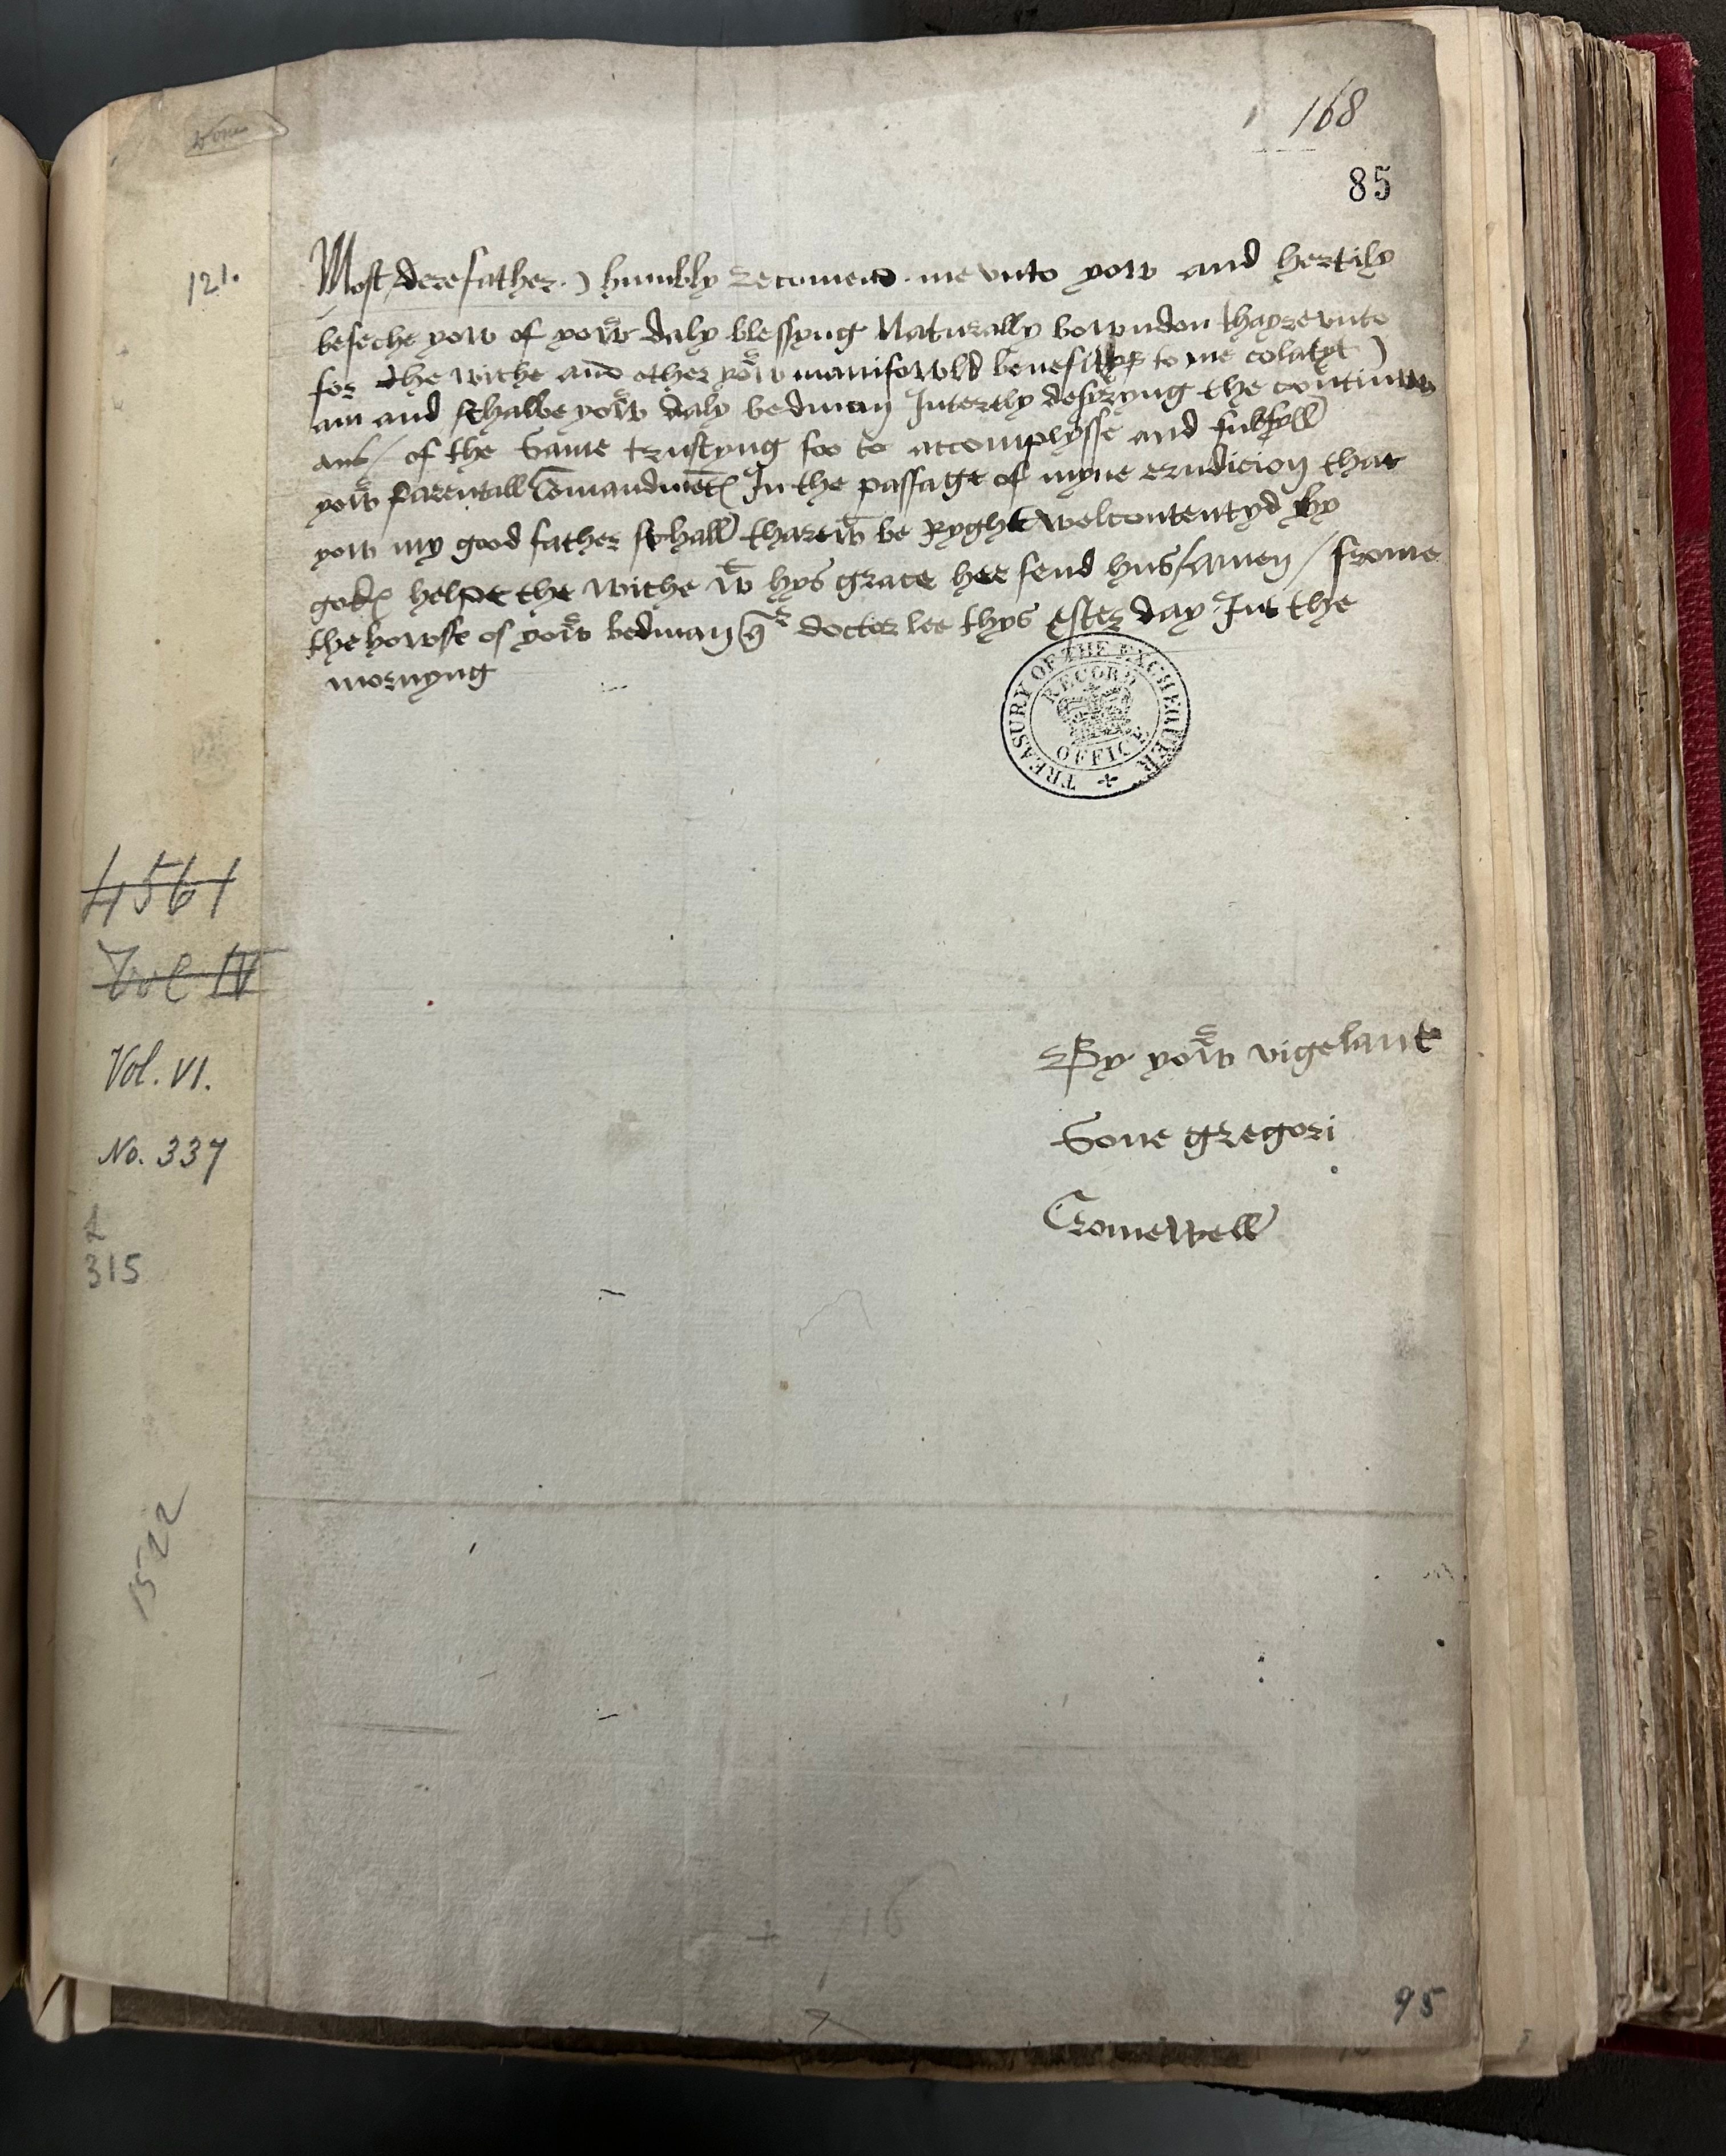 168
85
121.
Most dere father. I humbly recomend me vnto yow and hertily
beseche yow of yowr daly blessyng Naturally bowndon thayrevnto
for the wiche and other yowr manifowld to me colatyt I
am and schalbe yowr daly bedman Intertly desyryng the continu
ans / of the same trustyng soo to accomplysse and fulfyll
yowr parentall Comandmetes In the passage of myne erudicion that
yow my good father schall tharewt be Ryght welcontentyd by
godes helpe the wiche wt hys grace hee send hus / amen / frome
the howsse of yowr bedman doctor lee thys ester day Int the
mornyng
TREASURY OF THE EXCHEQUER
RECORD
OFFICE
4561
Vol IV
By yowr vigelant
Vol. VI.
Sone gregori
No. 337
Cromewell
315
1522
95